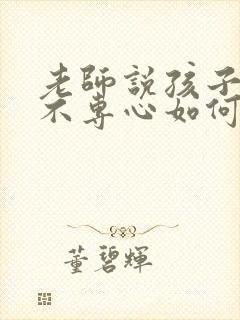 老師説孩子
不專心如何
董碧輝